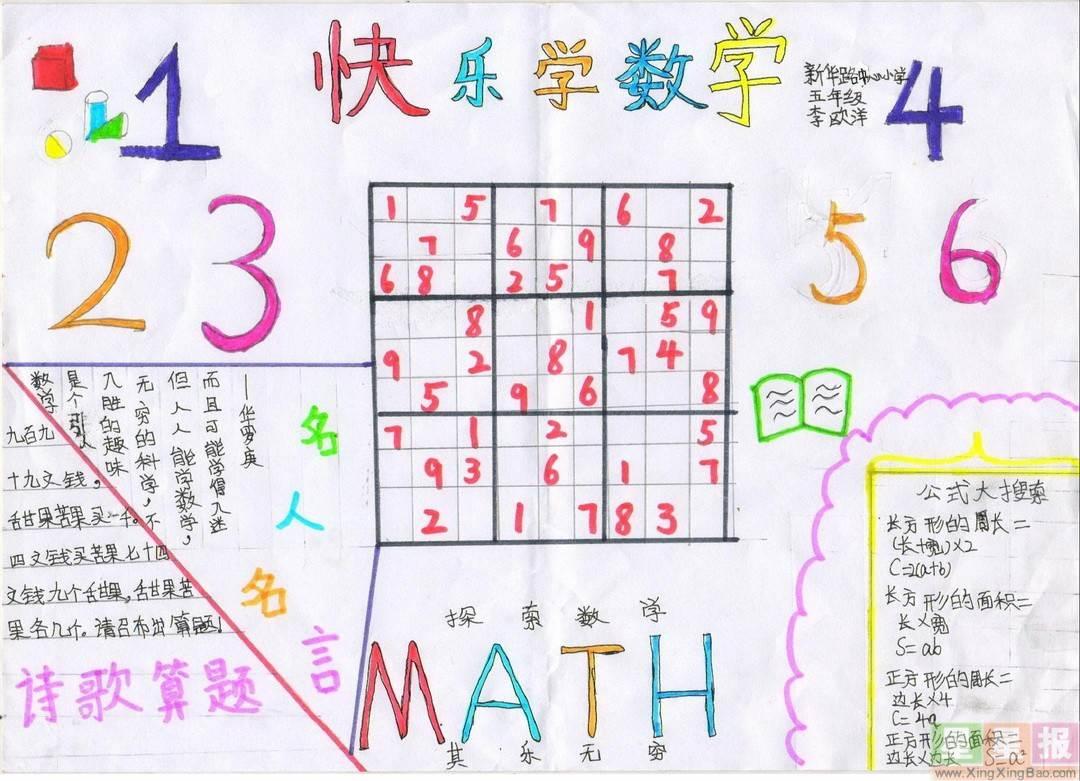 1
快乐学数学
新华路中心小学
五年级
李欧洋
4
2
3
5
6
1 5 7 6 2
7 6 9 8
6 8 2 5 7
8 1 5 9
9 2 8 7 4
5 9 6 8
7 1 2 5
9 3 6 1 7
2 1 7 8 3
数学
是个引人
入胜的趣味
无穷的科学,不
但人人能学数学,
而且可能学得入迷
——华罗庚
名人名言
九百九
十九文钱,
甜果苦果买一千。
四文钱买苦果七十四
文钱九个甜果,甜果苦
果各几个。请君布出算题!
诗歌算题
探索数学
MATH
其乐无穷
公式大搜索
长方形的周长=
(长+宽)×2
C=2(a+b)
长方形的面积=
长×宽
S=ab
正方形的周长=
边长×4
C=4a
正方形的面积=
边长×边长 S=a²
星星报
www.XingXingBao.com